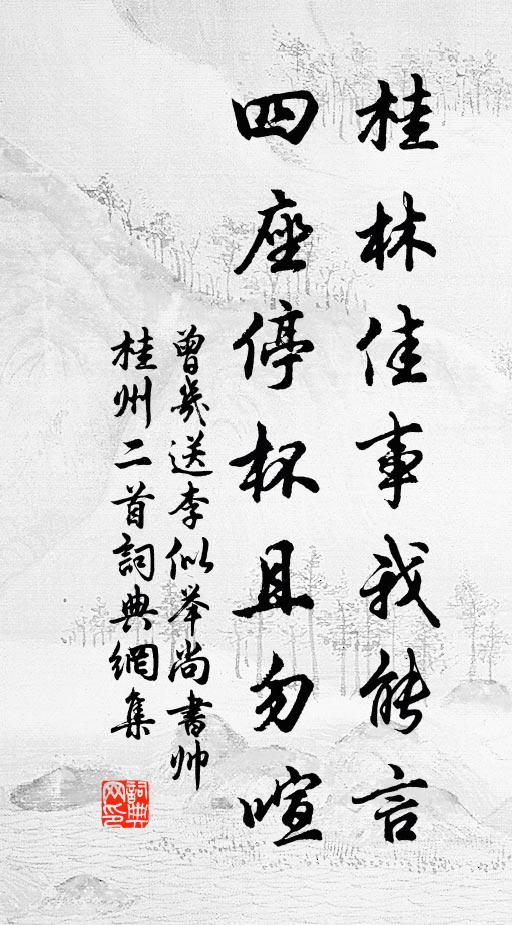 桂林佳事我能言
四座停杯且勿喧
曾几送李似举尚書帅
桂州二首詞典網集
詞典网印